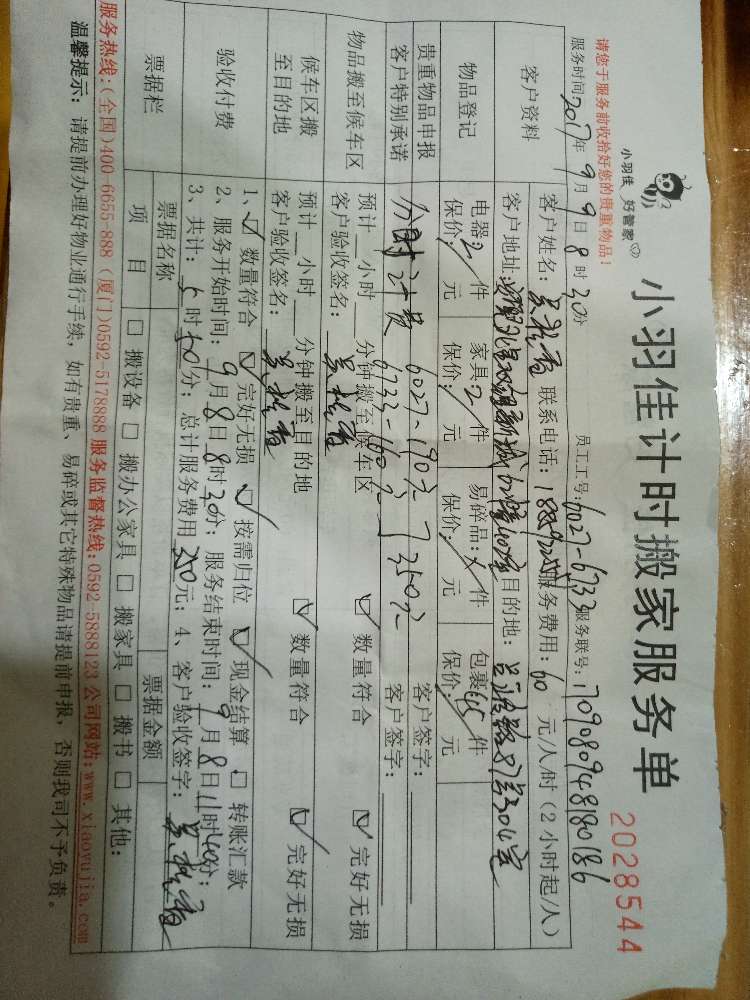 小羽佳 好管家
小羽佳计时搬家服务单
2028544
请您于服务前收拾好您的贵重物品!
员工工号:6027-6733 服务联号:170908948180186
服务时间:2017年9月9日8时30分
客户资料
客户姓名: 联系电话: 服务费用:60元/人/时(2小时起/人)
客户地址: 目的地:
物品登记
电器:2件 家具:2件 易碎品: 件 包裹:45件
保价: 元 保价: 元 保价: 元 保价: 元
贵重物品申报
客户特别承诺
分时计费 6027-190元 350元
6733-160元
客户签字:
客户签字:
物品搬至候车区
预计 小时 分钟搬至候车区 ☑数量符合 ☑完好无损
客户验收签名:
候车区搬
至目的地
预计 小时 分钟搬至目的地 ☑数量符合 ☑完好无损
客户验收签名:
验收付费
1、☑数量符合 ☑完好无损 ☑按需归位 ☑现金结算 □转账汇款
2、服务开始时间:9月8日8时30分; 服务结束时间:9月8日11时40分;
3、共计: 时50分; 总计服务费用350元; 4、客户验收签字:
票据栏
票据名称 票据金额
项目 □搬设备 □搬办公家具 □搬家具 □搬书 □其他:
服务热线:(全国)400-6655-888 (厦门)0592-5178888 服务监督热线:0592-5888123 公司网站:www.xiaoyujia.com
温馨提示: 请提前办理好物业通行手续, 如有贵重、易碎或其它特殊物品请提前申报, 否则我司不予负责。